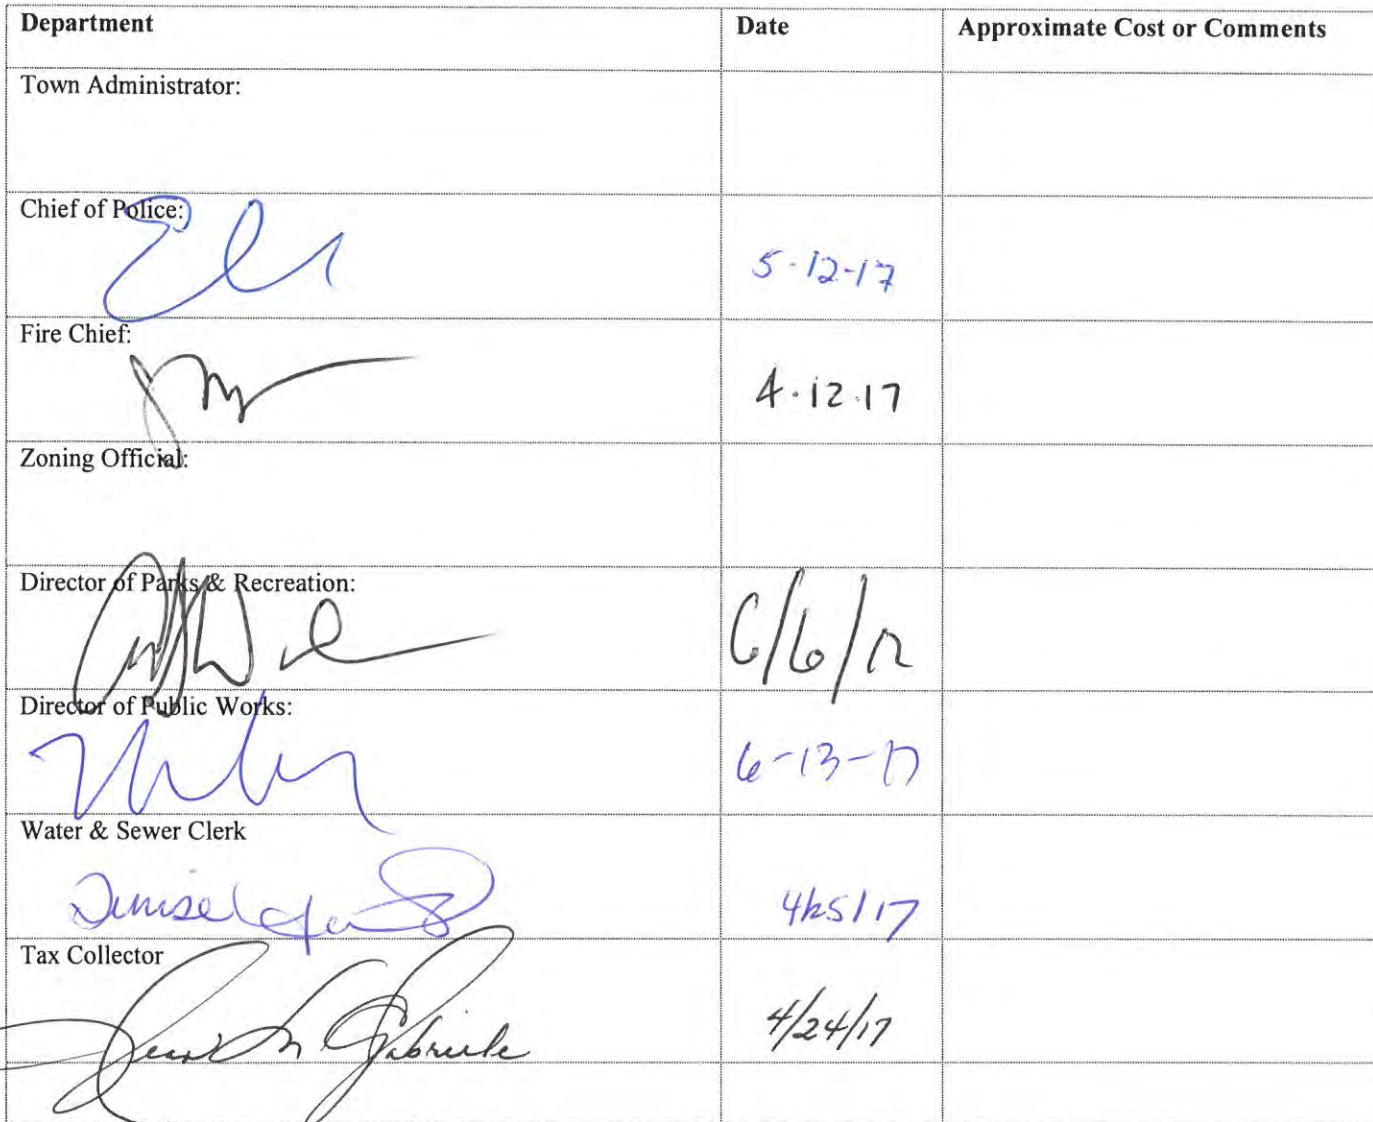 Department Date Approximate Cost or Comments
Town Administrator:
Chief of Police:
5-12-17
Fire Chief:
4.12.17
Zoning Official:
Director of Parks & Recreation:
6/6/17
Director of Public Works:
6-13-17
Water & Sewer Clerk
Denise
4/25/17
Tax Collector
4/24/17